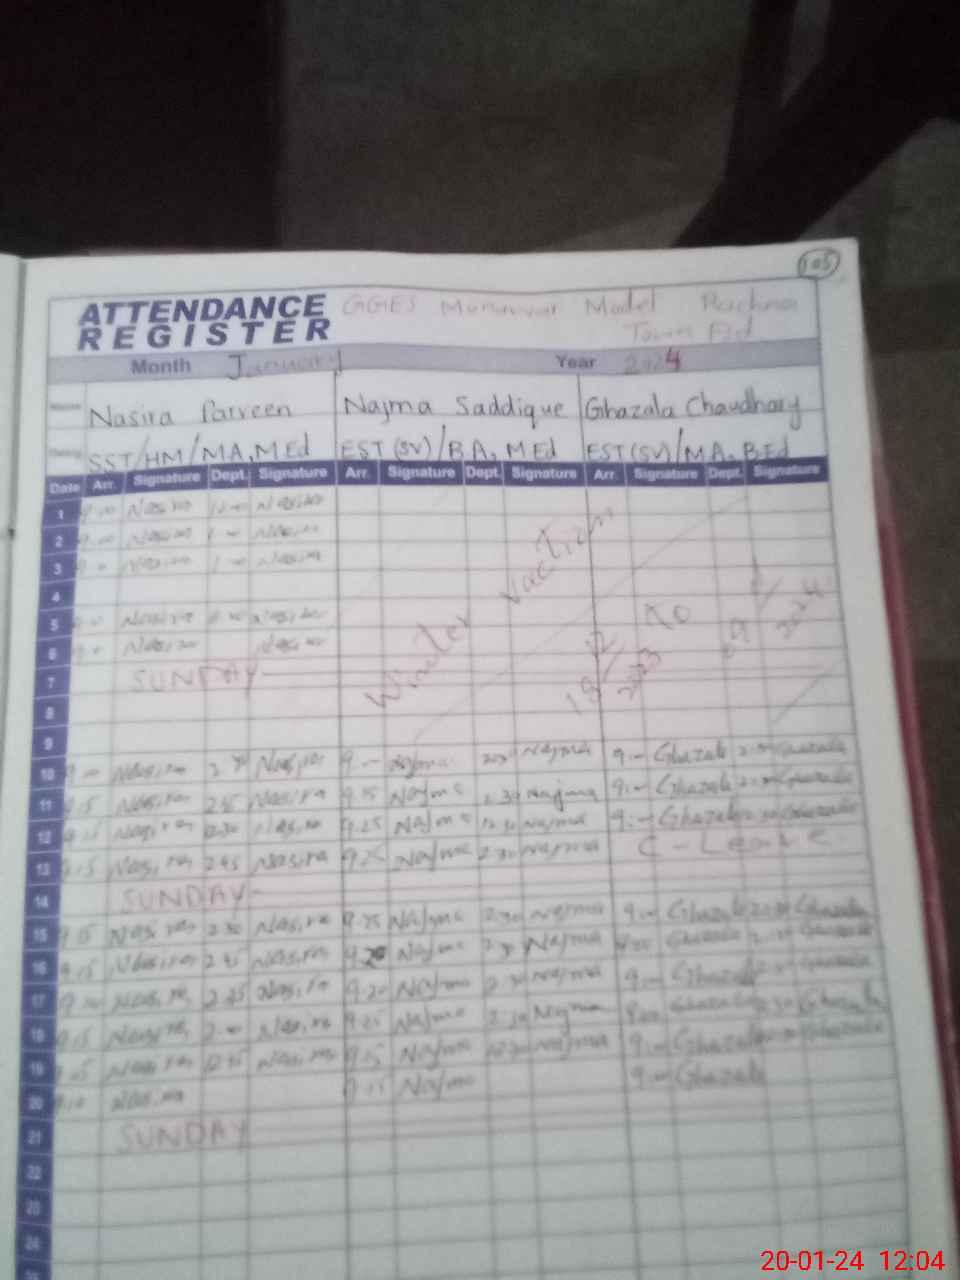 105
ATTENDANCE GGES Munawar Model Rachna
REGISTER Town Fsd
Month January Year 2024
Name Nasira Parveen Najma Saddique Ghazala Chaudhary
SST/HM/MA, MEd EST(SV)/BA, MEd EST(SV)/MA, BEd
Date Arr. Signature Dept. Signature Arr. Signature Dept. Signature Arr. Signature Dept. Signature
1 Nasira Nasira
2 Nasira Nasira
3 Nasira Nasira
4
5 Nasira Nasira
6 Nasira Nasira
Winter Vaction 18/12/2023 To 09/1/2024
7 SUNDAY
8
9
10 Nasira 2 30 Nasira 9 Najma 2 30 Najma 9 Ghazala Ghazala
11 9.15 Nasira 2 45 Nasira 9.25 Najma 2.30 Najma 9 Ghazala Ghazala
12 Nasira 12 30 Nasira 9.25 Najma 12 30 Najma 9 Ghazala Ghazala
13 9.15 Nasira 2 45 Nasira Najma 2 30 Najma C - Leave
14 SUNDAY
15 9.15 Nasira 2 30 Nasira 9.25 Najma 2.30 Najma 9 Ghazala Ghazala
16 9.15 Nasira 2 45 Nasira 9.20 Najma 2 30 Najma Ghazala Ghazala
17 Nasira 2 45 Nasira 9.20 Najma 2 30 Najma 9 Ghazala Ghazala
18 9.15 Nasira Nasira 9.25 Najma 2 30 Najma Ghazala Ghazala
19 Nasira 12 45 Nasira 9.15 Najma 12 30 Najma 9 Ghazala Ghazala
20 9.10 Nasira 9.15 Najma 9 Ghazala
21 SUNDAY
22
23
24
25
20-01-24 12:04